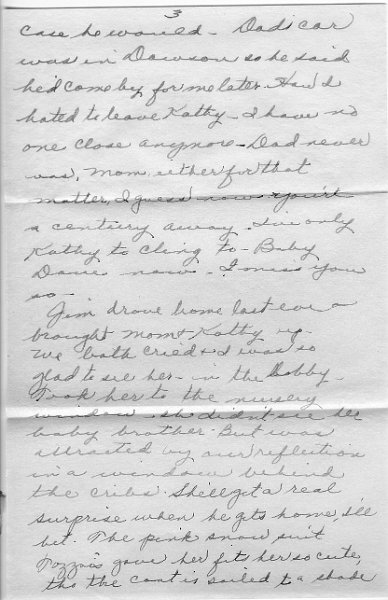 3
case he would - Dad's car
was in Dawson so he said
he'd come by for me later. How I
hated to leave Kathy - I have no
one close anymore - Dad never
was, Mom either for that
matter, I guess now you're
a century away. I've only
Kathy to cling to - Baby
Dave now - I miss you
so -
Jim drove home last eve &
brought Mom & Kathy up.
We both cried & I was so
glad to see her - in the lobby -
Took her to the nursery
window. she didn't see her
baby brother - But was
attracted by our reflection
in a window behind
the cribs. She'll get a real
surprise when he gets home, I'll
bet. The pink snow suit
gave her fits her so cute,
tho the coat is soiled to a shade